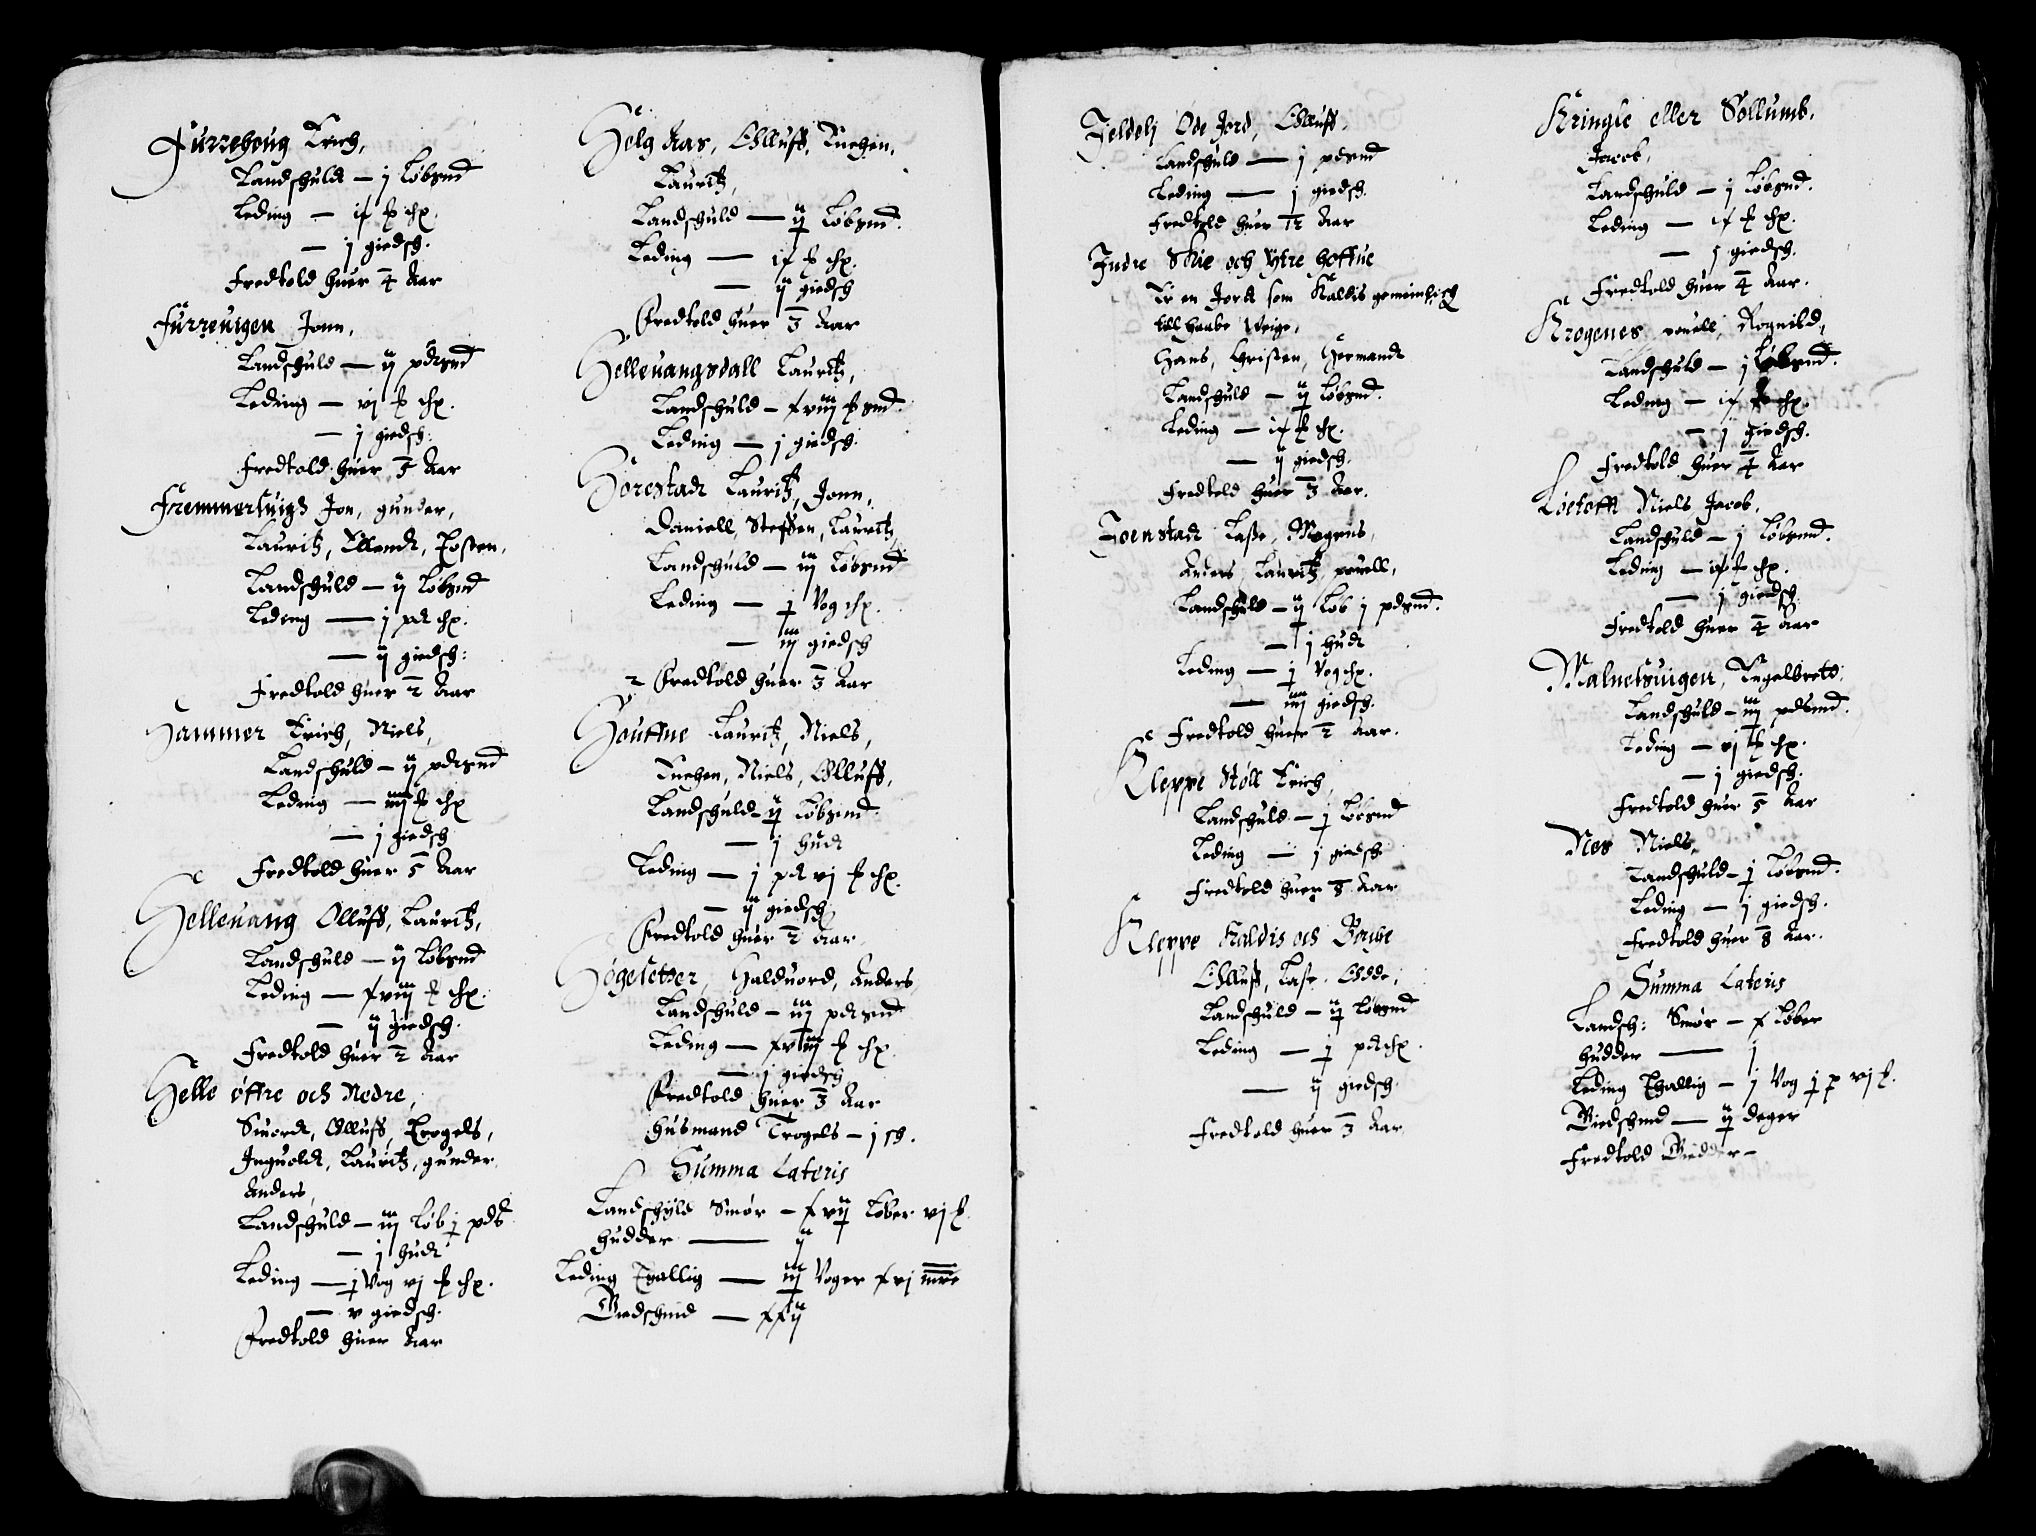 Furrehoug Erich,
Landschuld — j Løbsmd
Leding — if ℔ chp.
— j giedsch.
Fredtold huer 4 Aar
Furreuigen Jonn,
Landschuld — ij pdsmd
Leding — vj ℔ chp.
— j giedsch.
Fredtold huer 5 Aar
Fremmersuigd Jon, gunder,
Lauritz, Ellendt, Tosten,
Landschuld — ij Løbsmd
Leding — j pd chp.
— ij giedsch:
Fredtold huer 2 Aar
Hammer Erich, Niels,
Landschuld — ij pdsmd
Leding — iiij ℔ chp
— j giedsch
Fredtold huer 5 Aar
Helleuang Olluff, Lauritz,
Landschuld — ij Løbsmd
Leding — xviij ℔ chp.
— ij giedsch.
Fredtold huer 2 Aar
Helle øffre och Nedre,
Siuordt, Olluff, Trogels,
Inguoldt, Lauritz, gunder
Anders,
Landschuld — iij Løb j pds
— j hudt
Leding — j Vog vj ℔ chp.
— v giedsch.
Fredtold huer Aar
Helg Aas, Olluff, Knehen,
Lauritz,
Landschuld — ij Løbsmd.
Leding — if ℔ chp.
— ij giedsch
Fredtold huer 3 Aar
Helleuangsdall Lauritz,
Landschuld — xviij ℔ smd.
Leding — j giedsch.
Horestadt Lauritz, Jonn,
Daniell, Steffen, Lauritz,
Landschuld — iij Løbsmd
Leding — j Vog chp.
— iij giedsch
2 Fredtold huer 3 Aar
Houffue Lauritz, Niels,
Knehen, Niels, Olluff,
Landschuld — ij Løbsmd.
— j hudt
Leding — j pd vj ℔ chp.
— ij giedsch
Fredtold huer 2 Aar
Høgesetter, Halduord, Anders
Landschuld — iij pdsmd
Leding — xviij ℔ chp.
— j giedsch
Fredtold huer 3 Aar
Husmand Trogels — j sch.
Summa Lateris
Landschyld Smør — xvij Løber vj ℔.
Hudder — ij
Leding Thallig — iij Voger xvj mrc
Giedschind — xxij
Jeldelj Øde Jord, Olluff,
Landschuld — j pdsmd
Leding — j giedsch.
Fredtold huer 12 Aar
Indre Skie och Ytre hoffue
Er en Jord som Kaldis gemeinlich
till haabe Veige,
Hans, Christen, Hermandt
Landschuld — ij Løbsmd.
Leding — if ℔ chp.
— ij giedsch.
Fredtold huer 3 Aar.
Joenstadt Lasse, Mogens,
Anders, Lauritz, pouell,
Landschuld — ij Løb j pdsmd.
— j hudt
Leding — j Vog chp.
— iiij giedsch.
Fredtold huer 2 Aar.
Kleppe Støll Erich,
Landschuld — j Løbsmd
Leding — j giedsch
Fredtold huer 8 Aar
Kleppe Kaldis och Borghe
Olluff, Lasse, Odde,
Landschuld — ij Løbsmd
Leding — j pdchp.
— ij giedsch.
Fredtold huer 3 Aar
Kringle eller Sollumb,
Jacob,
Landschuld — j Løbsmd.
Leding — if ℔ chp.
— j giedsch.
Fredtold huer 4 Aar.
Krogenes pouell, Rognild,
Landschuld — j Løbsmd.
Leding — if ℔ chp.
— j giedsch.
Fredtold huer 4 Aar
Løetofft Niels Jacob,
Landschuld — j Løbsmd.
Leding — if ℔ chp.
— j giedsch
Fredtold huer 4 Aar
Malnesuigen, Engelbrett,
Landschuld — iij pdsmd.
Leding — vj ℔ chp.
— j giedsch.
Fredtold huer 5 Aar
Nes Niels,
Landschuld — j Løbsmd.
Leding — j giedsch.
Fredtold huer 8 Aar.
Summa Lateris
Landsch: Smør — x Løber
Hudder — j
Leding Thallig — j Vog j p vj ℔.
Giedschind — ij deger
Fredtold Giedder —